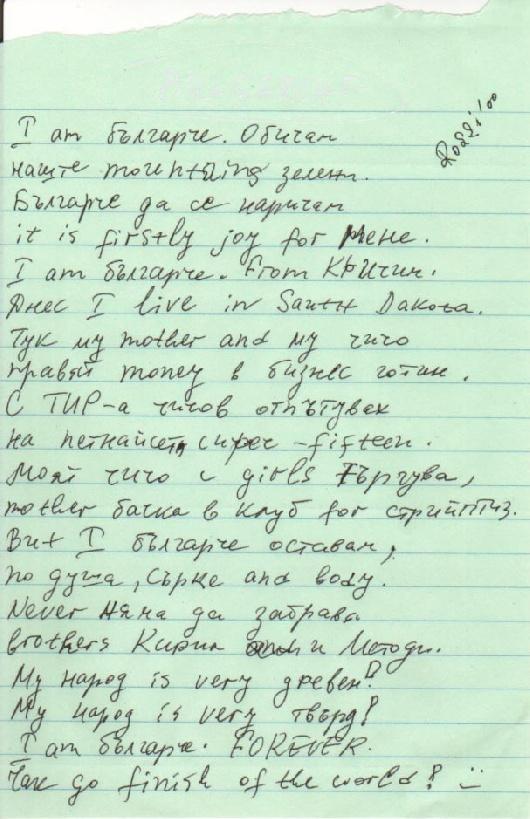 Rossi '00
I am българче. Обичам
наште mountaing зелени.
Българче да се наричам
it is firstly joy for мене.
I am българче. From Кричим.
Днес I live in Sauth Dakota.
Тук my mother and my чичо
правят money в бизнес готин.
С ТИР-а чичов отпътувах
на петнайсти, сиреч - fifteen.
Моят чичо с girls търгува,
mother бачка в клуб for стрийптиз.
But I българче оставам,
по душа, сърце and body.
Never няма да забравя
brothers Кирил и Методи.
My народ is very древен!
My народ is very твърд!
I am българче. FOREVER.
Чак до finish of the world!